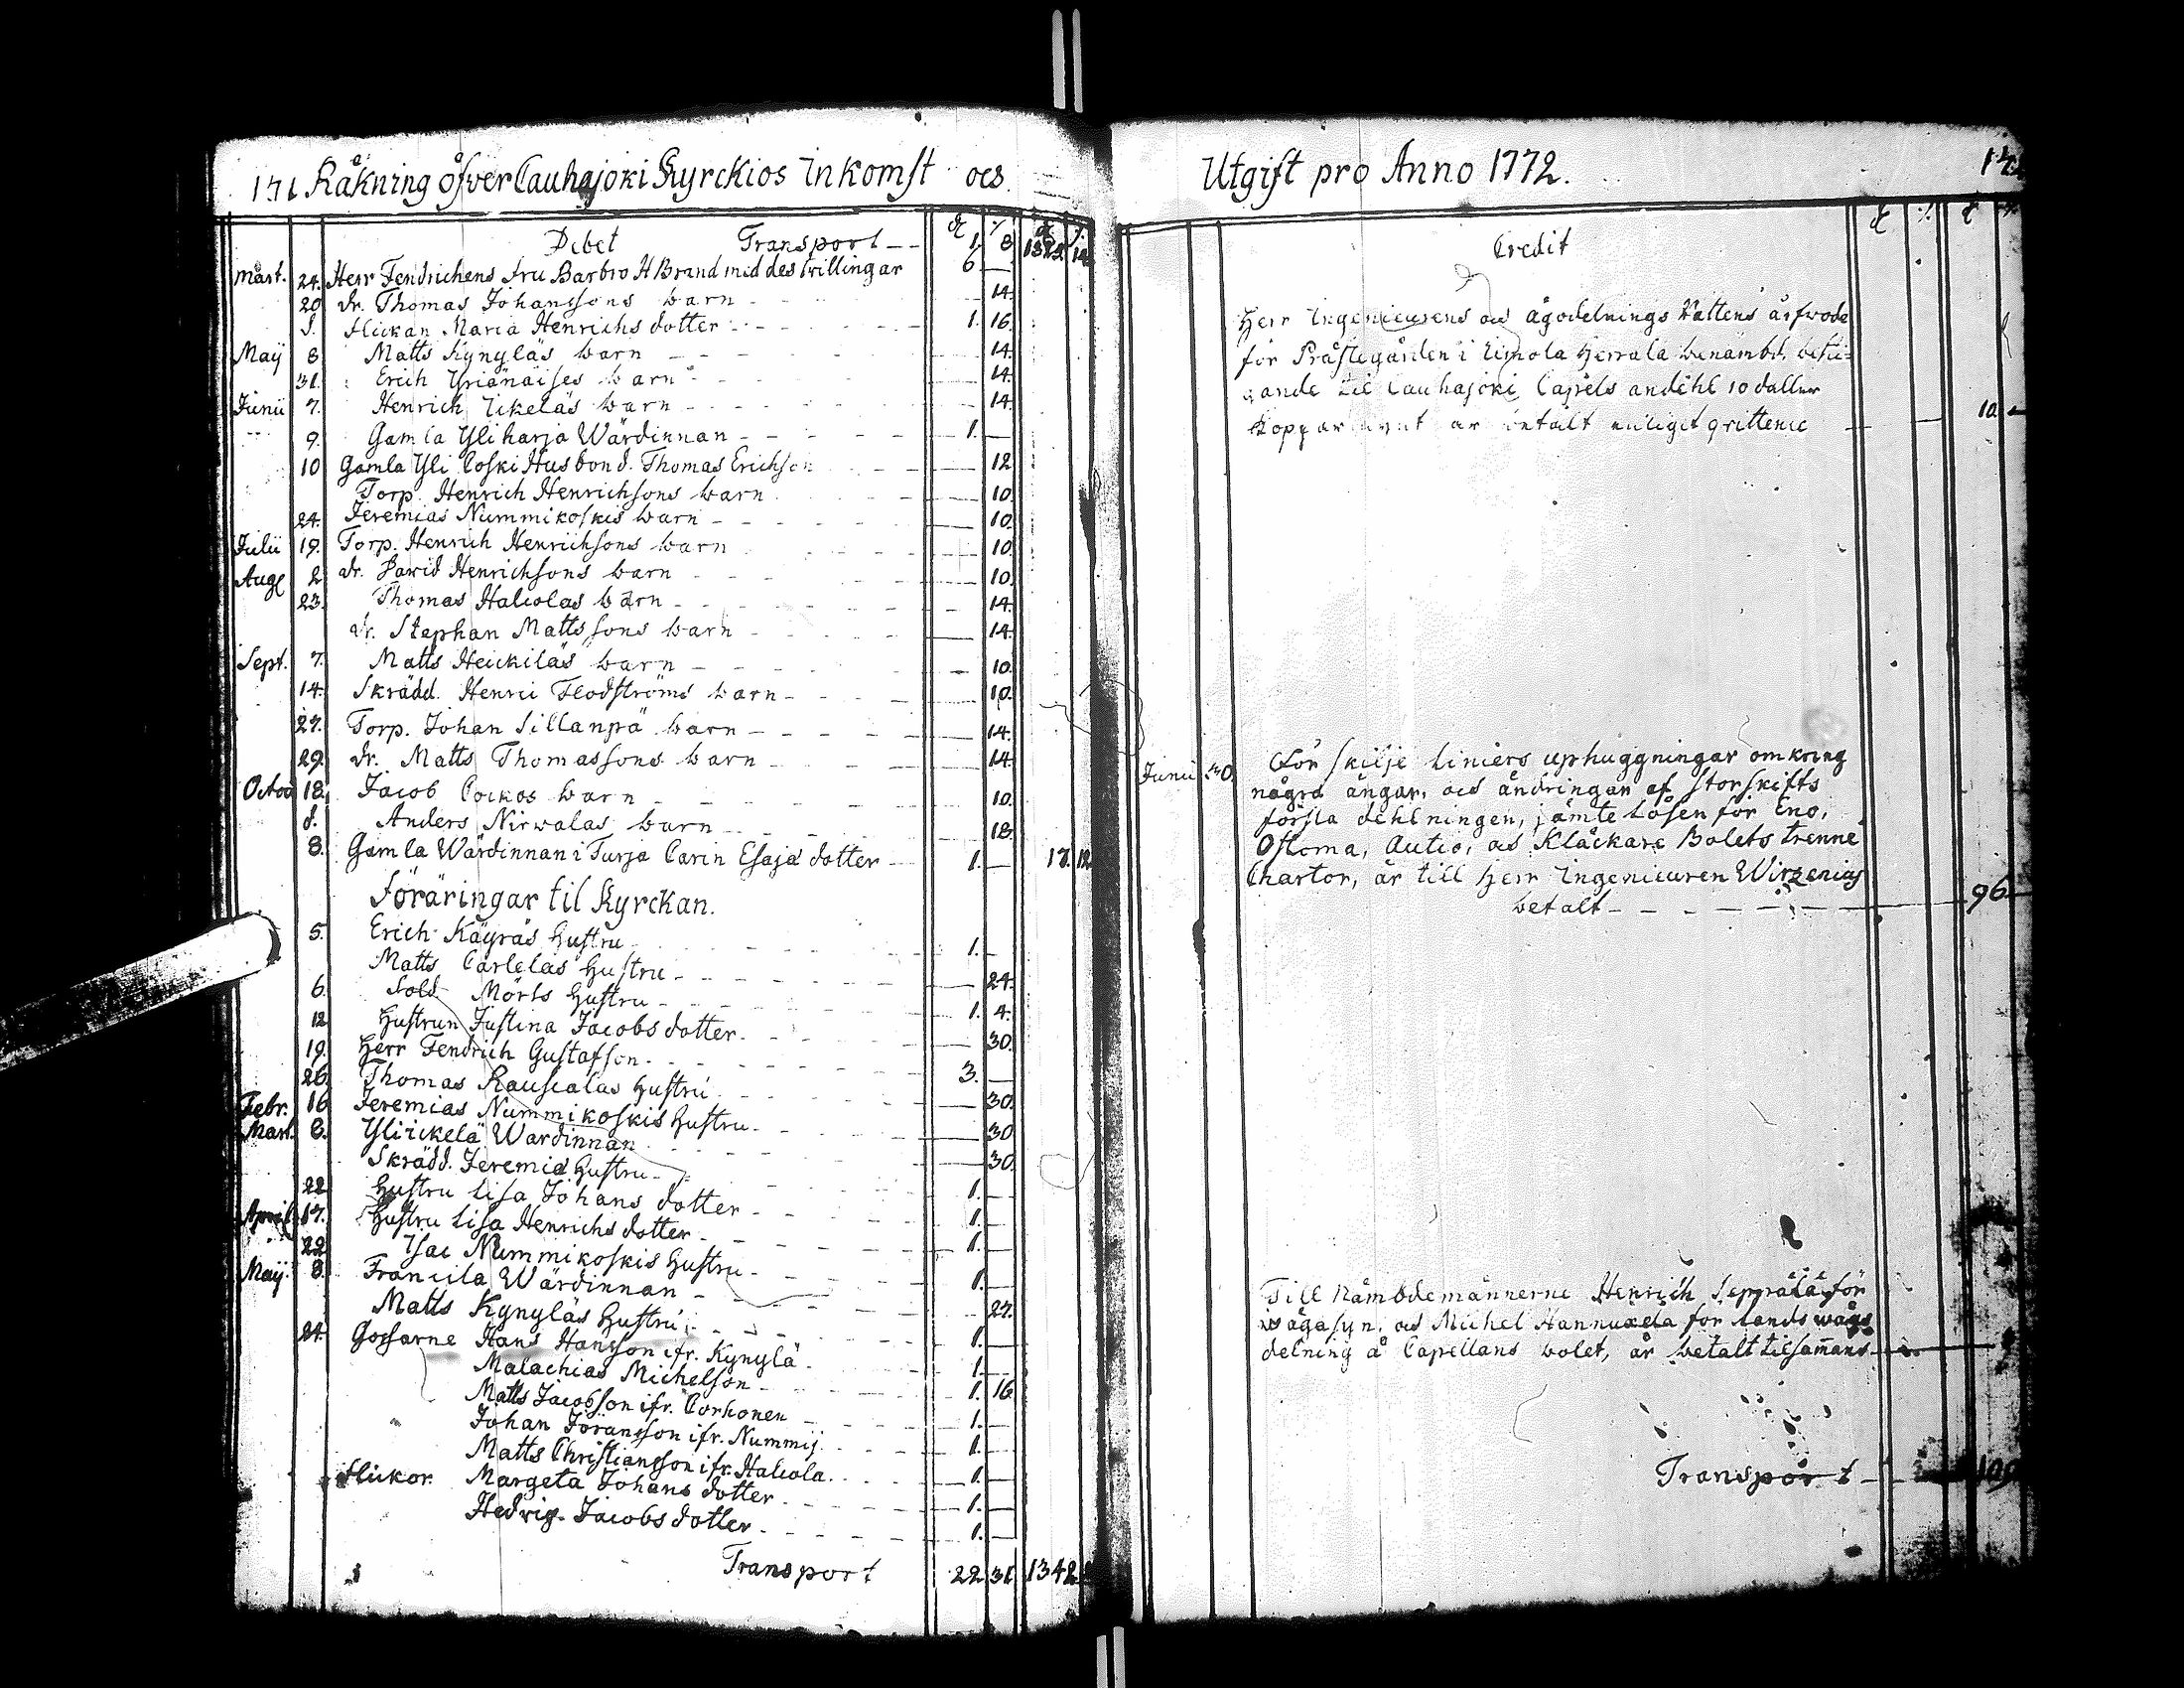 171 Räkning öfver Cauhajoki Kyrckios Inkomst och
Debet Transport 1. 8 1323. 14
Mart. 24. Herr Fendrichens fru Barbro H Brand med des trillingar 6 —
20 dr. Thomas Johanssons barn 14.
d. flickan Maria Henrichs dotter 1. 16.
Maÿ 8 Matts Kynyläs barn 14.
31. Erich Yrjänäises barn 14.
Junii 7. Henrich Ickeläs barn 14.
9. Gamla Yliharja Wärdinnan 1. —
10 Gamla Yli Coski Husbond. Thomas Erichson 12
Torp. Henrich Henrichsons barn 10.
24. Jeremias Nummikoskis barn 10.
Julii 19. Torp. Henrich Henrichsons barn 10.
Aug 2 dr. David Henrichsons barn 10.
23. Thomas Halcolas barn 14.
dr. Stephan Mattssons barn 14.
Sept. 7. Matts Heickiläs barn 10.
14. Skrädd. Henric Flodströms barn 10.
27. Torp. Johan Sillanpä barn 14.
29. dr. Matts Thomassons barn 14
Octob 18. Jacob Cockos barn 10.
d. Anders Nirwalas barn 18.
8. Gamla Wärdinnan i Turja Carin Esaiä dotter 1. — 17. 12
Föräringar til Kyrckan.
5. Erich Käyräs Hustru 1. —
Matts Carlelas Hustru 24.
6. Sold. Mörts Hustru 1. 4.
12 Hustrun Justina Jacobs dotter 30.
19. Herr Fendrich Gustafson 3. —
26. Thomas Rauscalas Hustru 30.
Febr. 16 Jeremias Nummikoskis Hustru 30
Mart. 8. Yliickelä Wärdinnan 30.
Skrädd. Jeremiæ Hustru 1. —
22 Hustru Lisa Johans dotter 1. —
April 17. Hustru Lisa Henrichs dotter 1. —
22 Isac Nummikoskis Hustru 1. —
Maÿ 8. Francila Wärdinnan
Matts Kynyläs Hustru 27.
24. Gossarne Hans Hansson ifr. Kynylä 1. —
Malachias Michelson 1. —
Matts Jacobson ifr. Corhonen 1. 16
Johan Jöransson ifr. Nummij 1. —
Matts Christiansson ifr. Halcola 1. —
Flickor Margeta Johans dotter 1. —
Hedvig Jacobs dotter 1. —
Transport 22 31 1342
Utgift pro Anno 1772. 17
Credit
Herr Ingenieurens och ägodelnings Rättens arfwode
för Prästegården i Herrala benämbd,
ande til Cauhajoki Capels andehl 10 daller
Koppar mynt är betalt enligit qvittence 10. —
Junii 30. För skilje liniers uphuggningar omkring
några ängar, och ändringar af storskifts
första dehlningen, jämte Lösen för Eno,
Ostoma, Autio, och Kläckare Bolets trenne
Chartor, är till Herr Ingenieuren Wirzenius
betalt 96 —
Till Nämbdemännerne Henrich Seppälä för
wägasyn, och Michel Hannuxela for lands wägs
delning å Capellans bolet, är betalt tilsam̄ans
Transport 109